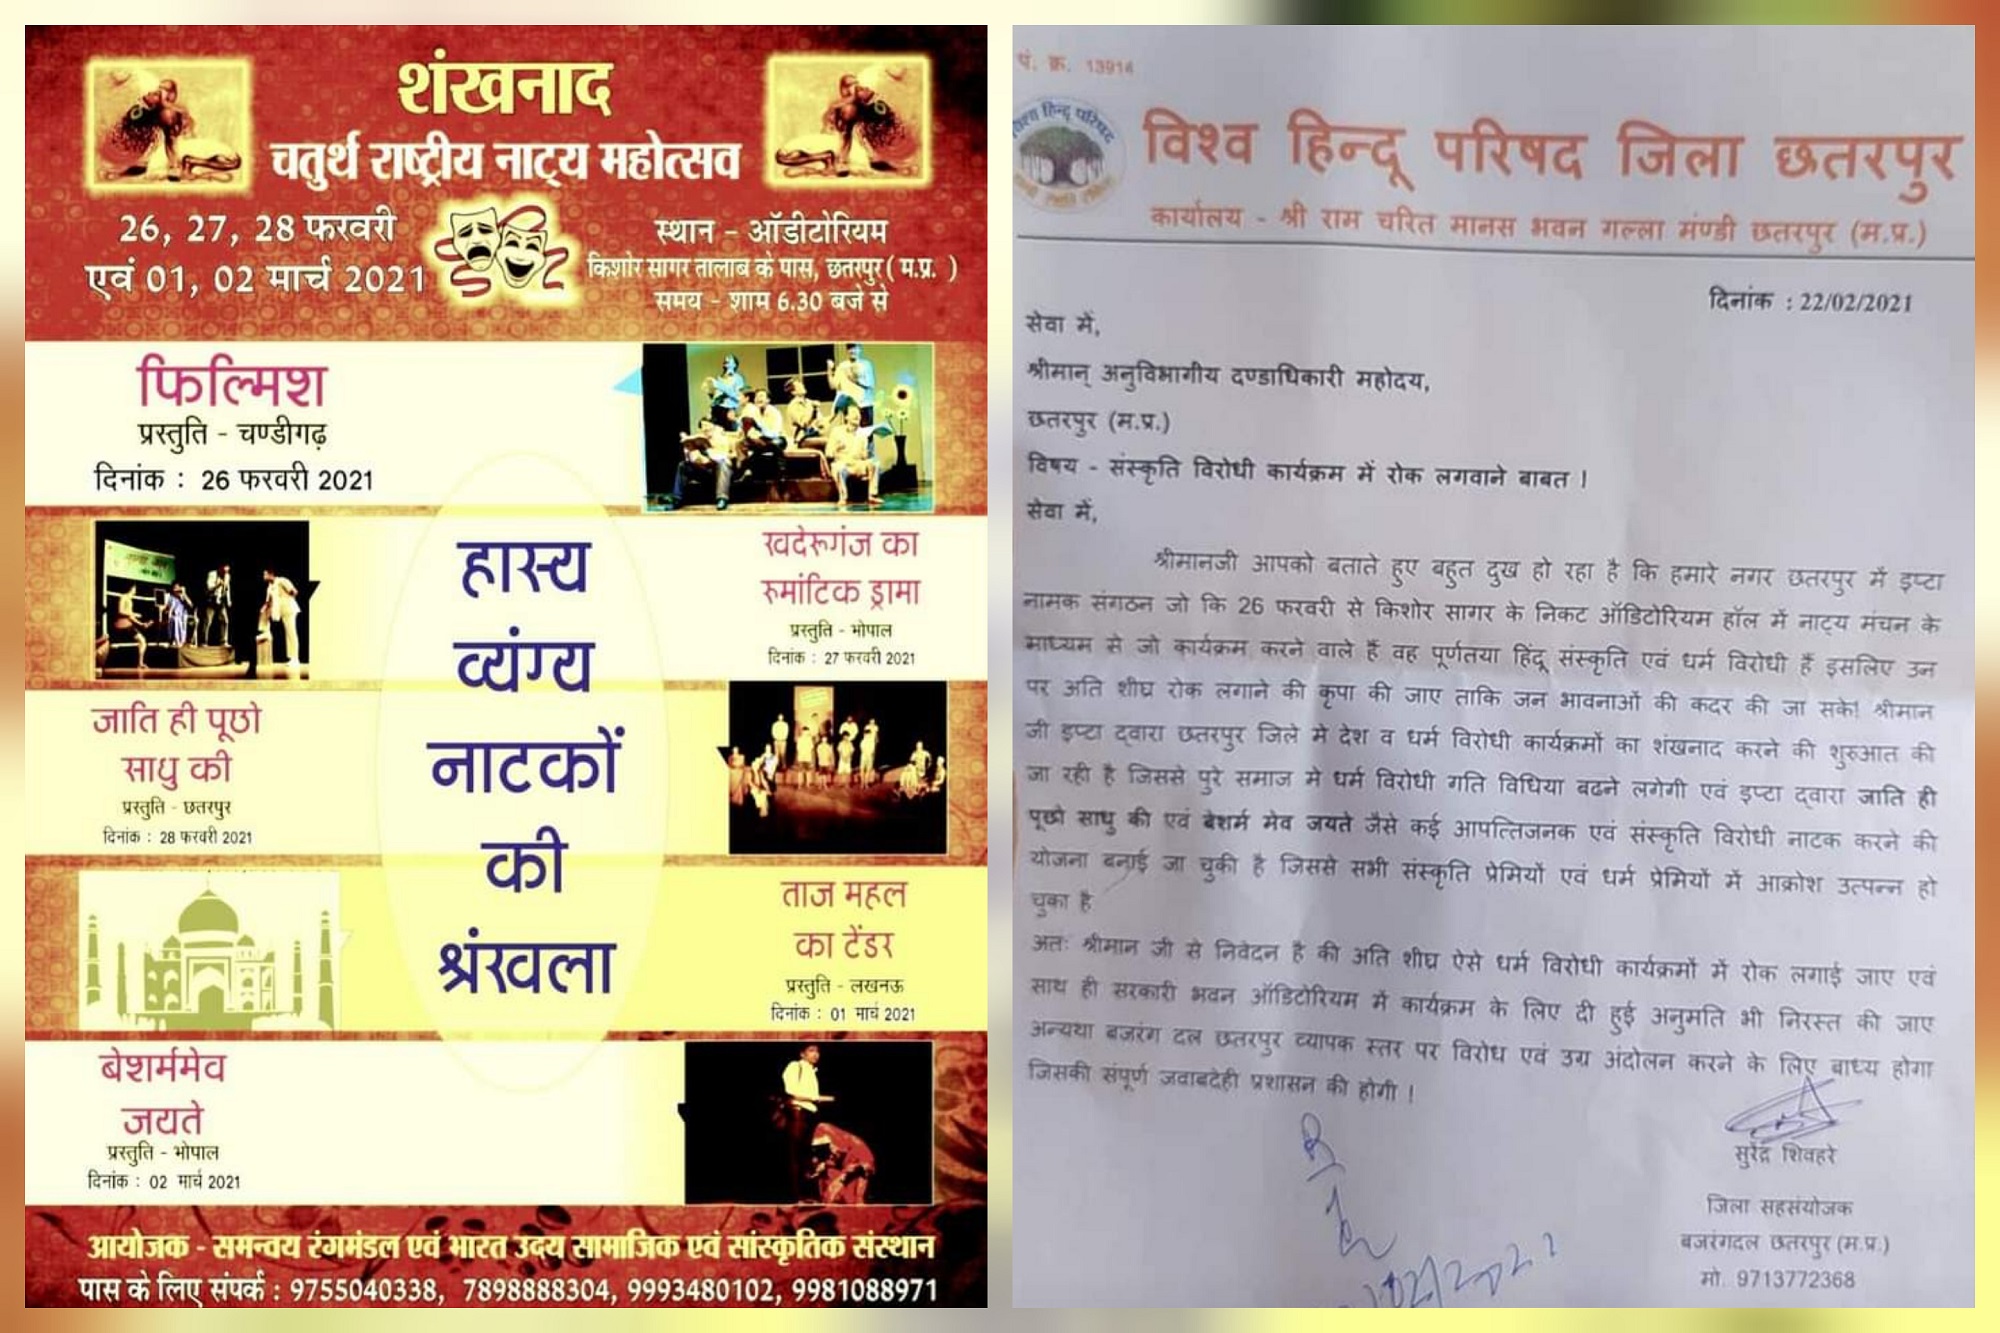 शंखनाद
चतुर्थ राष्ट्रीय नाट्य महोत्सव
26, 27, 28 फरवरी
एवं 01, 02 मार्च 2021
स्थान - ऑडीटोरियम
किशोर सागर तालाब के पास, छतरपुर( म.प्र. )
समय - शाम 6.30 बजे से
फिल्मिश
प्रस्तुति - चण्डीगढ़
दिनांक : 26 फरवरी 2021
हास्य
व्यंग्य
नाटकों
की
श्रंखला
खदेरूगंज का
रुमांटिक ड्रामा
प्रस्तुति - भोपाल
दिनांक : 27 फरवरी 2021
जाति ही पूछो
साधु की
प्रस्तुति - छतरपुर
दिनांक : 28 फरवरी 2021
ताज महल
का टेंडर
प्रस्तुति - लखनऊ
दिनांक : 01 मार्च 2021
बेशर्ममेव
जयते
प्रस्तुति - भोपाल
दिनांक : 02 मार्च 2021
आयोजक - समन्वय रंगमंडल एवं भारत उदय सामाजिक एवं सांस्कृतिक संस्थान
पास के लिए संपर्क : 9755040338, 7898888304, 9993480102, 9981088971
पं. क्र. 13914
विश्व हिन्दू परिषद जिला छतरपुर
कार्यालय - श्री राम चरित मानस भवन गल्ला मंण्डी छतरपुर (म.प्र.)
दिनांक : 22/02/2021
सेवा में,
श्रीमान् अनुविभागीय दण्डाधिकारी महोदय,
छतरपुर (म.प्र.)
विषय - संस्कृति विरोधी कार्यक्रम में रोक लगवाने बाबत !
सेवा में,
श्रीमानजी आपको बताते हुए बहुत दुख हो रहा है कि हमारे नगर छतरपुर में इप्टा
नामक संगठन जो कि 26 फरवरी से किशोर सागर के निकट ऑडिटोरियम हॉल में नाट्य मंचन के
माध्यम से जो कार्यक्रम करने वाले हैं वह पूर्णतया हिंदू संस्कृति एवं धर्म विरोधी हैं इसलिए उन
पर अति शीघ्र रोक लगाने की कृपा की जाए ताकि जन भावनाओं की कदर की जा सके! श्रीमान
जी इप्टा द्वारा छतरपुर जिले मे देश व धर्म विरोधी कार्यक्रमों का शंखनाद करने की शुरुआत की
जा रही है जिससे पुरे समाज मे धर्म विरोधी गति विधिया बढने लगेगी एवं इप्टा द्वारा जाति ही
पूछो साधु की एवं बेशर्म मेव जयते जैसे कई आपत्तिजनक एवं संस्कृति विरोधी नाटक करने की
योजना बनाई जा चुकी है जिससे सभी संस्कृति प्रेमियों एवं धर्म प्रेमियों में आक्रोश उत्पन्न हो
चुका है
अतः श्रीमान जी से निवेदन है की अति शीघ्र ऐसे धर्म विरोधी कार्यक्रमों में रोक लगाई जाए एवं
साथ ही सरकारी भवन ऑडिटोरियम में कार्यक्रम के लिए दी हुई अनुमति भी निरस्त की जाए
अन्यथा बजरंग दल छतरपुर व्यापक स्तर पर विरोध एवं उग्र अंदोलन करने के लिए बाध्य होगा
जिसकी संपूर्ण जवाबदेही प्रशासन की होगी !
सुरेंद्र शिवहरे
जिला सहसंयोजक
बजरंगदल छतरपुर (म.प्र.)
मो. 9713772368